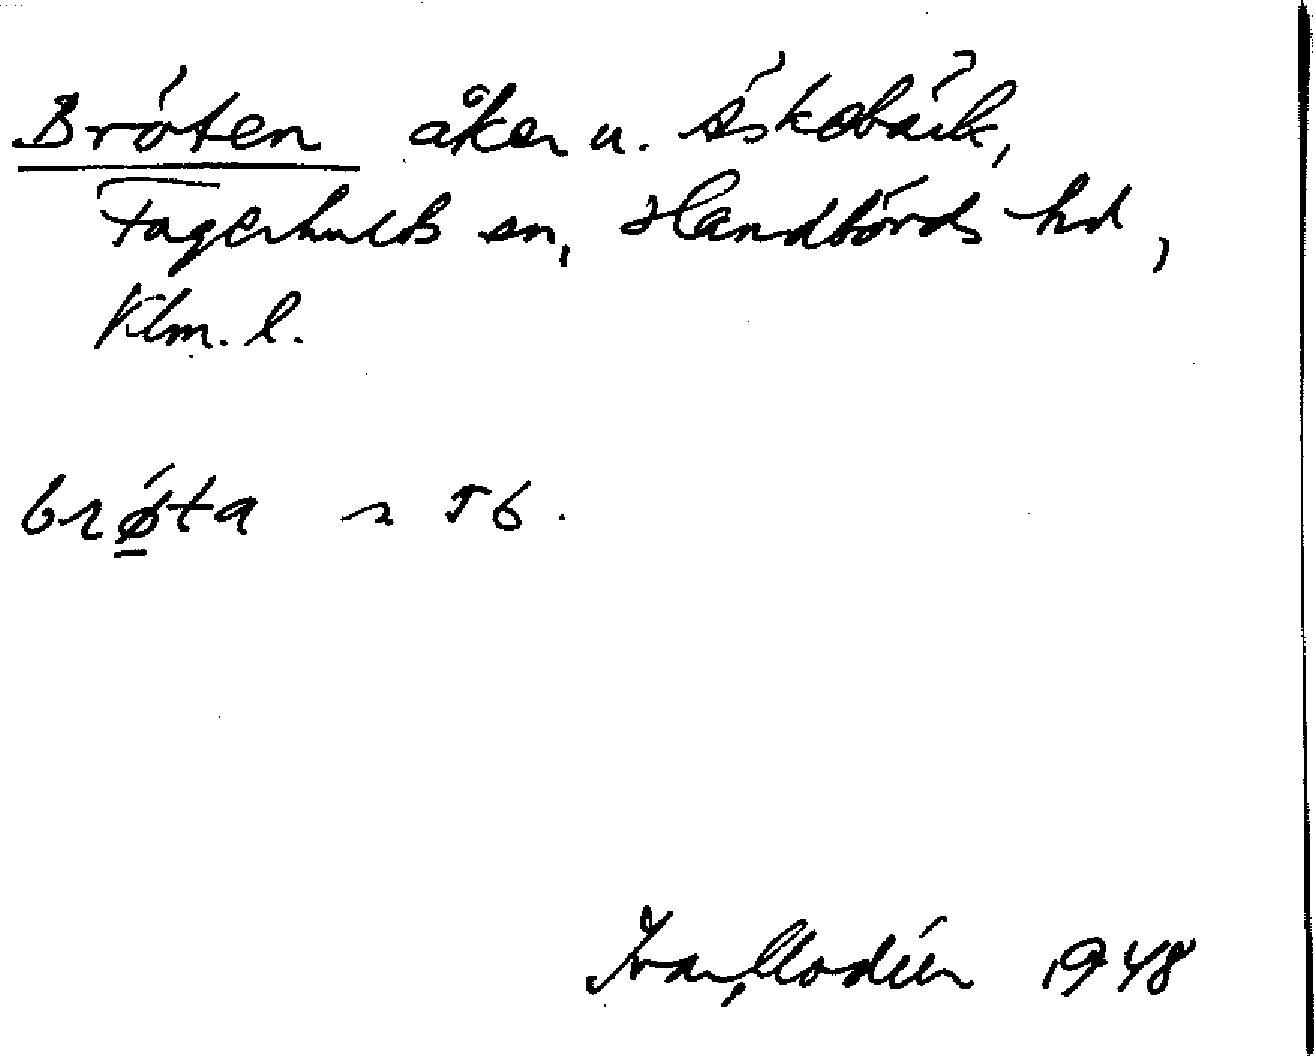 Bröten åker u. Äskebäck,
Fagerhults sn, Handbörds hd,
Klm. l.
brǿ̱ta ~ 56.
Ivar Modéer 1948